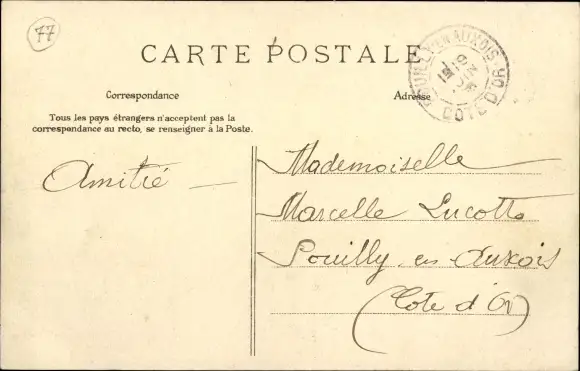 77
CARTE POSTALE
POUILLY-EN-AUXOIS
CÔTE D'OR
Correspondance
Adresse
Tous les pays étrangers n'acceptent pas la
correspondance au recto, se renseigner à la Poste.
Amitié
Mademoiselle
Marcelle Lucotte
Pouilly en Auxois
(Cote d'Or)